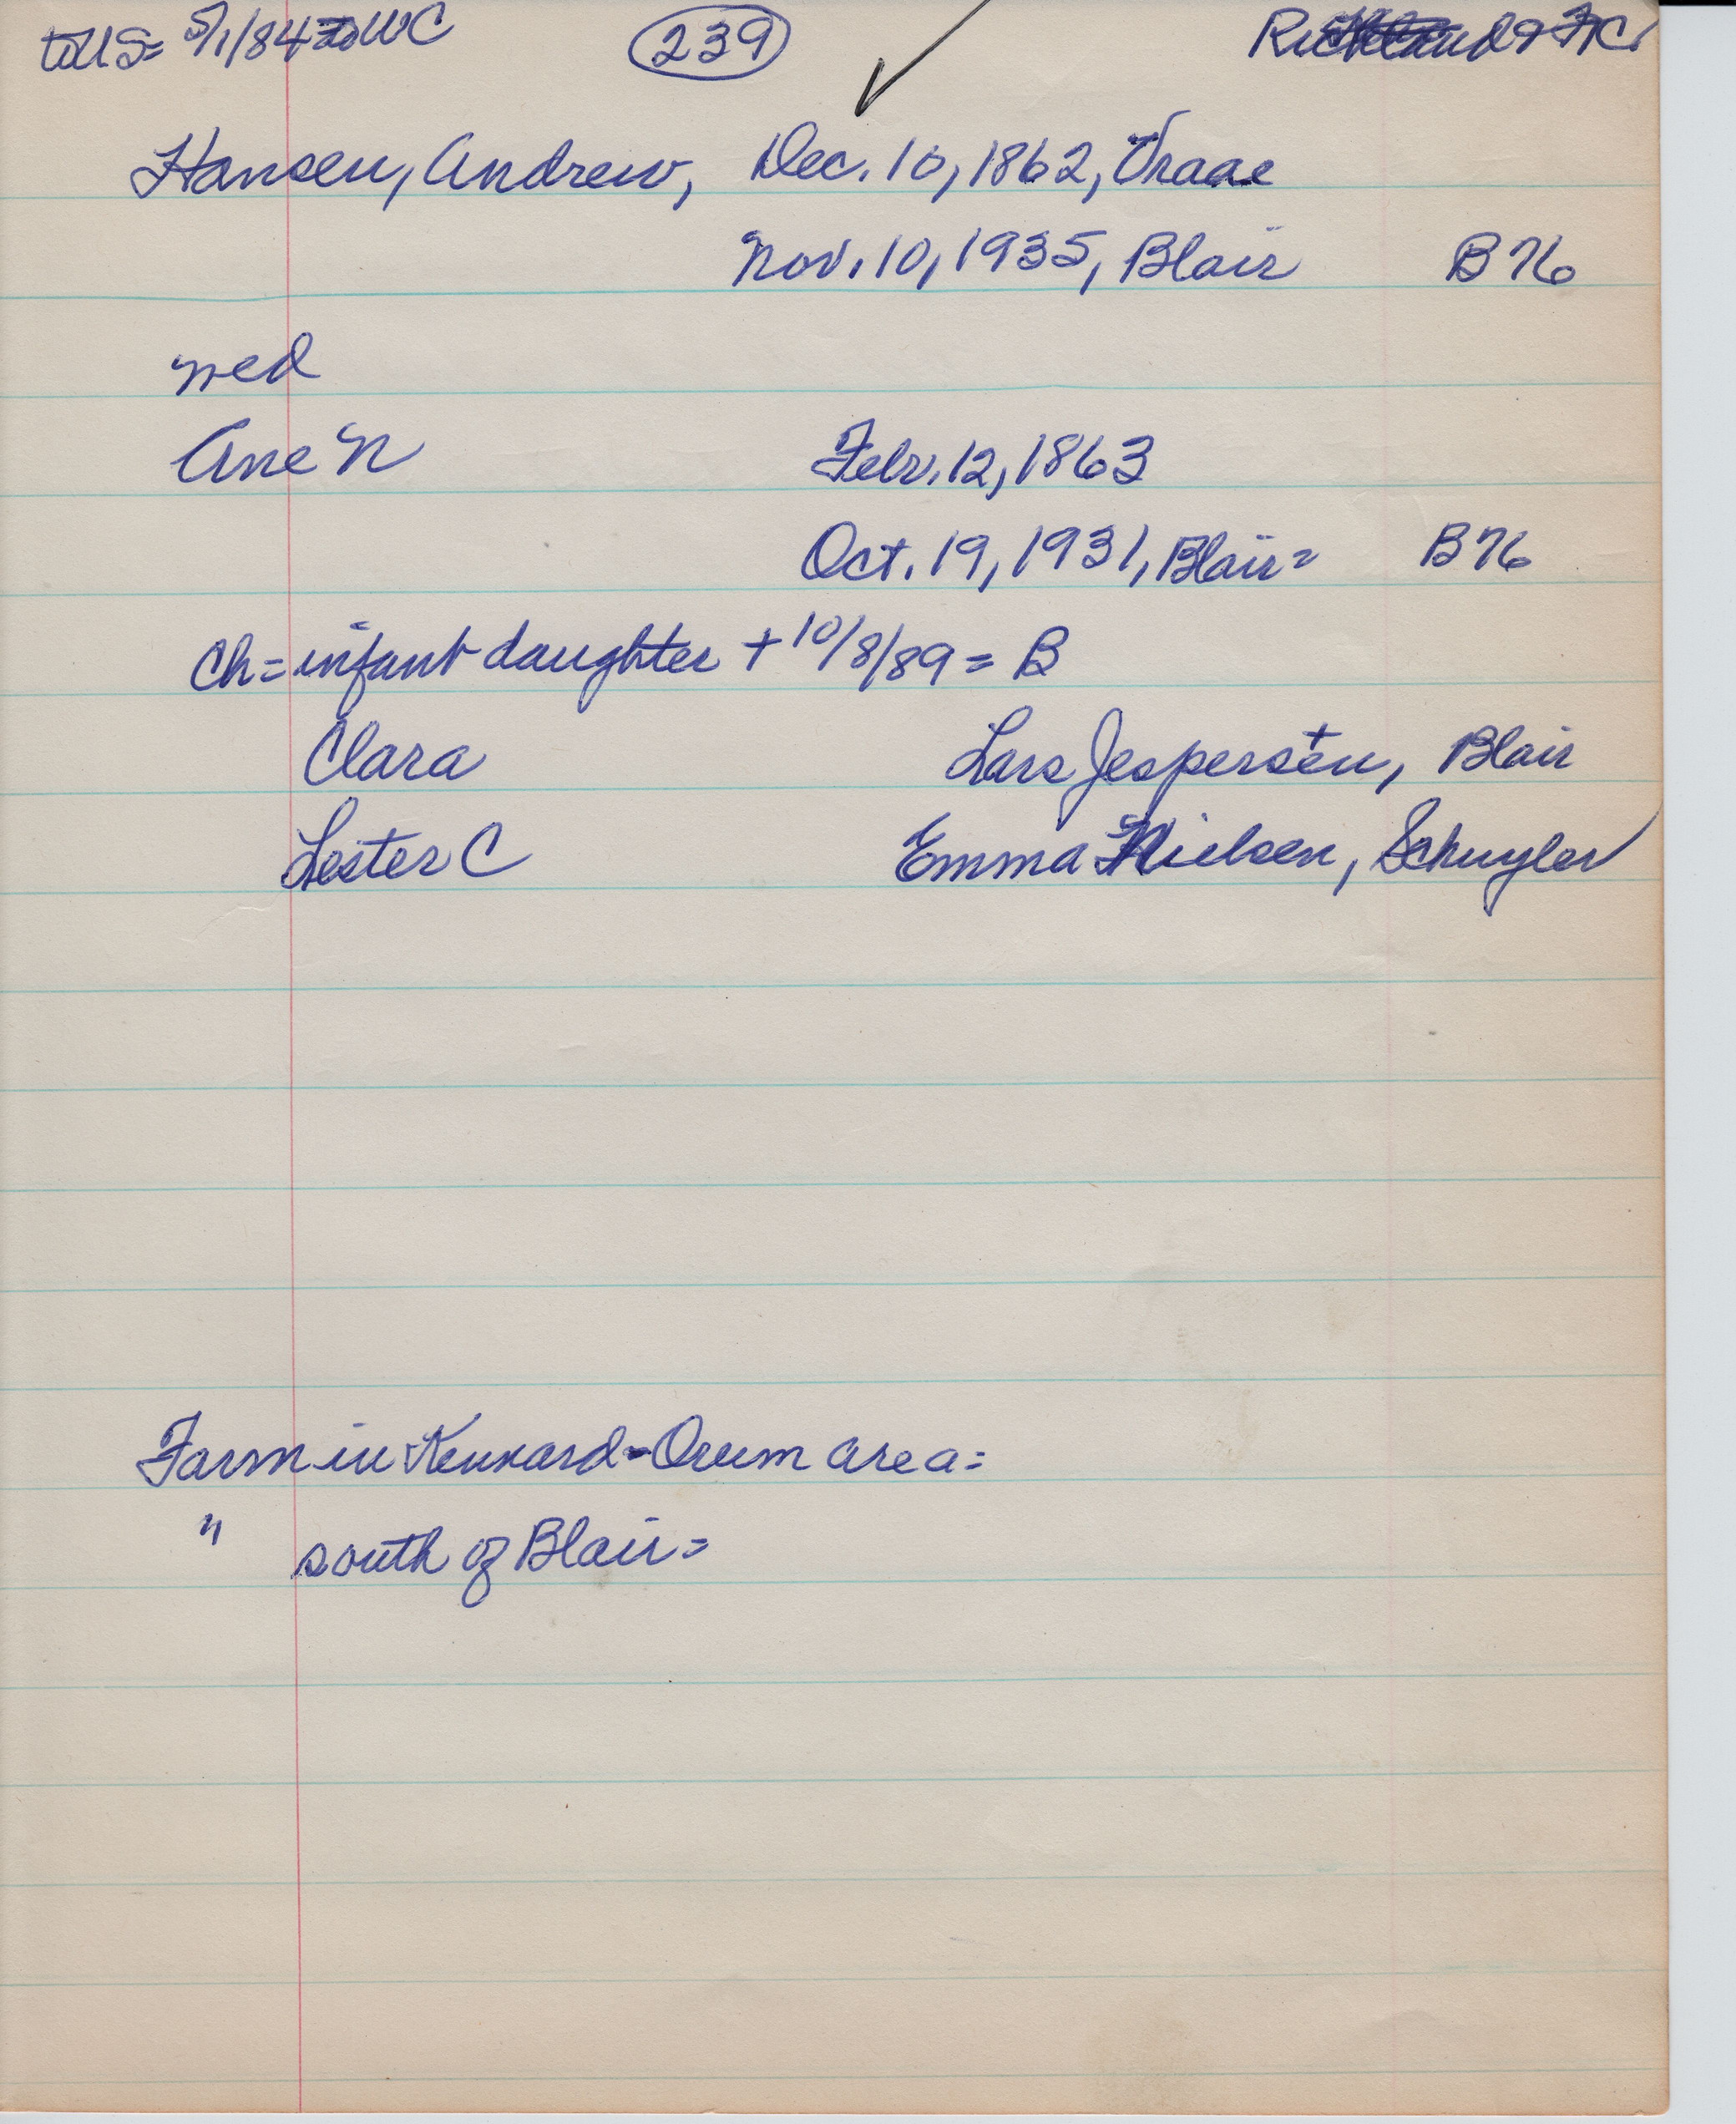 to US= 5/1/84 to WC
239
& FC
Hansen, Andrew, Dec. 10, 1862, Vraae
Nov. 10, 1935, Blair B76
med
Ane N Febr. 12, 1863
Oct. 19, 1931, Blair= B76
Ch= infant daughter + 10/8/89 = B
Clara Lars Jespersen, Blair
Lester C Emma Nielsen, Schuyler
Farm in Kennard-Orum area=
" south of Blair=